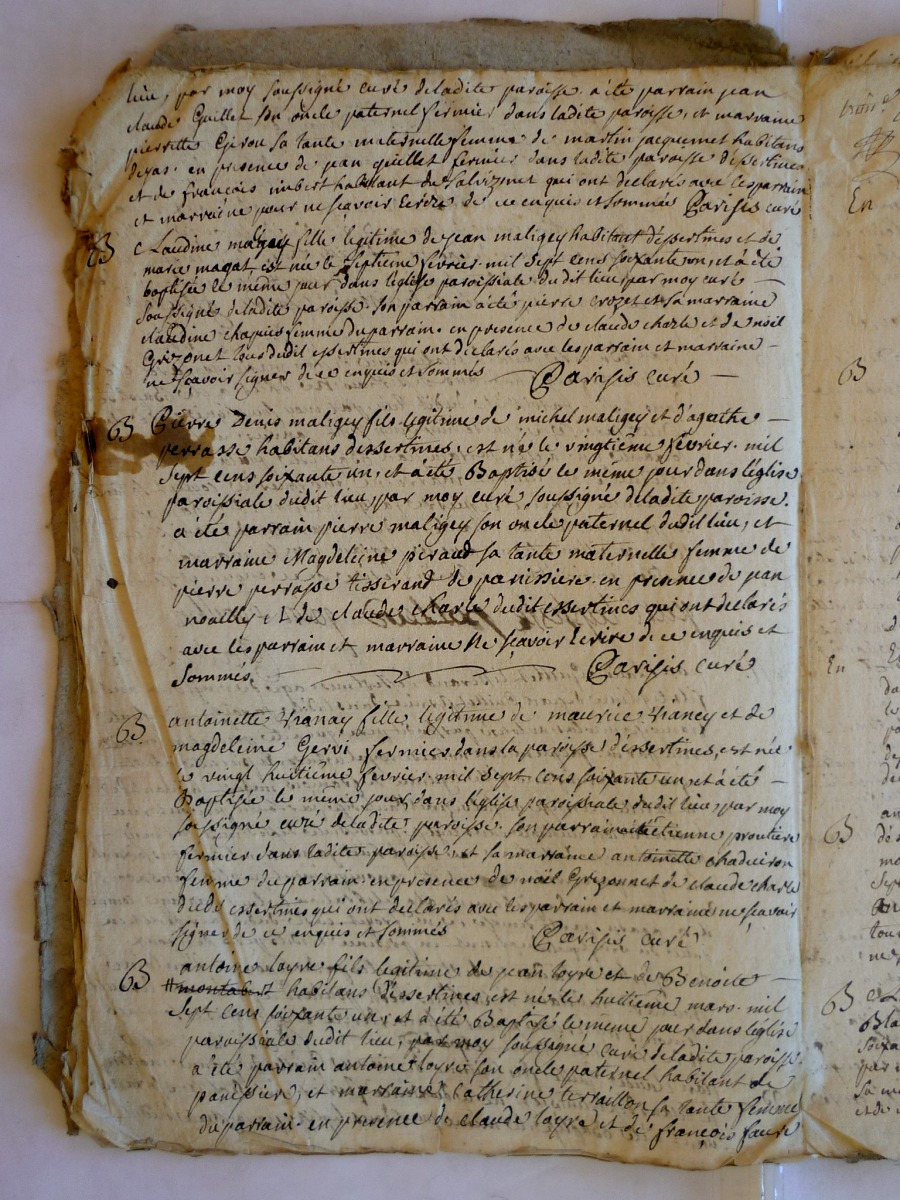 lieu, par moy soussigné curé deladite paroisse a été parrain jean
claude Guillet son oncle paternel fermier dans ladite paroisse, et marraine
pierrette Epirou sa tante maternelle femme de martin jacquemet habitans
en presence de jean guillet fermier dans ladite paroisse dessertines
et de francois imbert habitant de Salvizinet qui ont declarés avec les parrain
et marraine pour ne sçavoir Ecrire de ce enquis et sommés Parisis curé
B Claudine maligey fille legitime de jean maligey habitant dessertines et de
marie magat, est née le septieme fevrier mil sept cens soixante un, et à été
baptisée le même jour dans leglise paroissiale dudit lieu par moy curé
soussigné deladite paroisse. son parrain à été pierre crozet et sa marraine
claudine chapuis femme du parrain. en presence de claude charle et de noël
Grizonet tous dudit essertines qui ont declarés avec les parrain et marraine
ne sçavoir signer de ce enquis et sommés Parisis curé
B Pierre Denis maligey fils legitime de michel maligey et d'agathe
perrasse habitans dessertines, est né le vingtième fevrier mil
sept cens soixante un, et à été Baptisé le même jour dans léglise
paroissiale dudit lieu par moy curé soussigné deladite paroisse.
a été parrain pierre maligey son oncle paternel dudit lieu, et
marraine Magdeleine peraud sa tante maternelle femme de
pierre perrasse tisserand de panissiere. en presence de jean
noailly et de claude charle dudit essertines qui ont declarés
avec les parrain et marraine Ne sçavoir Ecrire de ce enquis et
sommés. Parisis curé
B antoinette Vianay fille legitime de maurice Vianey et de
magdeleine Gervi fermier dans la paroisse d'essertines, est née
le vingt huitième fevrier mil sept cens soixante un et à été
Baptisée le même jour dans léglise paroissiale dudit lieu par moy
soussigné curé deladite paroisse. son parrain a été etienne proutiere
fermier dans ladite paroisse, et sa marraine antoinette chadeiron
femme du parrain en presence de noël Grizonnet de claude charle
dudit essertines qui ont declarés avec les parrain et marraine ne sçavoir
signer de ce enquis et sommés Parisis curé
B antoine loyre fils legitime de jean loyre et de Benoite
habitans d'essertines est né le huitième mars mil
sept cens soixante un, et à été Baptisé le même jour dans léglise
paroissiale dudit lieu, par moy soussigné curé deladite paroisse.
a été parrain antoine loyre son oncle paternel habitant de
panissiere, et marraine Catherine terraillon sa tante femme
du parrain. en presence de claude loyre et de françois faure
En
B
En
B
B